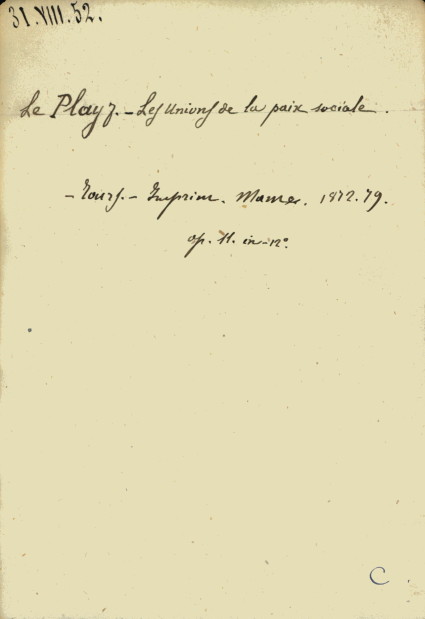 31.VIII.52.
Le Play F. - Les Unions de la paix sociale.
- Tours. - Imprim. Mame. 1872.79.
op. 11. in-12º.
C.